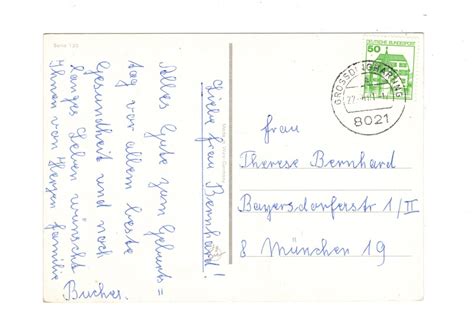 Serie 125
Liebe Frau Bernhard!
Alles Gute zum Geburts=
tag vor allem beste
Gesundheit und noch
langes Leben wünscht
Ihnen von Herzen Familie
Bucher.
50
DEUTSCHE BUNDESPOST
GROSSDINGHARTING
8021
Frau
Therese Bernhard
Bayersdorferstr 1/II
8 München 19